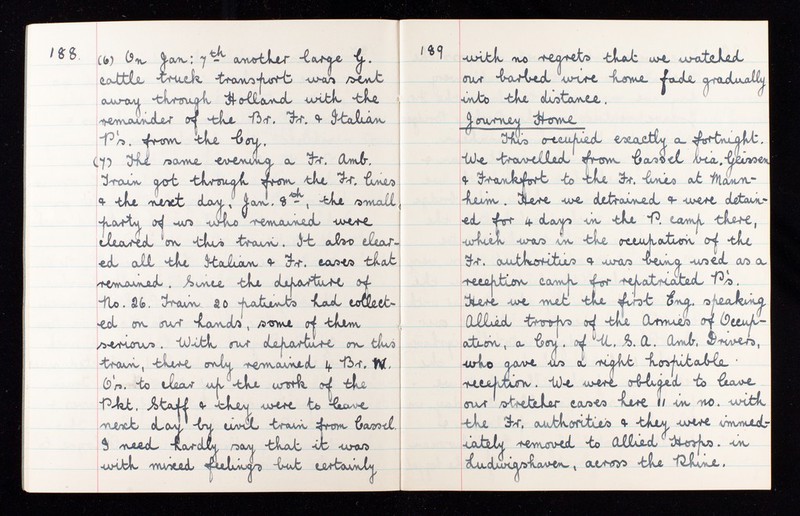 188.
(6) On Jan: 7th another large G.
cattle truck transport was sent
away through Holland with the
remainder of the Br. Fr. & Italian
P's. from the Coy.
(7) The same evening a Fr. Amb.
Train got through from the Fr. lines
& the next day, Jan. 8th, the small
party of us who remained were
cleared on this train. It also clear-
ed all the Italian & Fr. cases that
remained. Since the departure of
No. 26. Train 20 patients had collect-
ed on our hands, some of them
serious. With our departure on this
train, there only remained 4 Br. N.
O's. to clear up the work of the
Pkt. Staff & they were to leave
next day by civil train from Cassel.
I need hardly say that it was
with mixed feelings but certainly
189
with no regrets that we watched
our barbed wire home fade gradually
into the distance.
Journey Home
This occupied exactly a fortnight.
We travelled from Cassel via, Geissen
& Frankfort to the Fr. lines at Mann-
heim. Here we detrained & were detain-
ed for 4 days in the P. camp there,
which was in the occupation of the
Fr. authorities & was being used as a
reception camp for repatriated P's.
Here we met the first Eng. speaking
Allied troops of the Armies of Occup-
ation, a Coy. of U.S.A. Amb. Drivers,
who gave us a right hospitable
reception. We were obliged to leave
our stretcher cases here 11 in no. with
the Fr. authorities & they were immed-
iately removed to Allied Hosps. in
Ludwigshaven, across the Rhine.